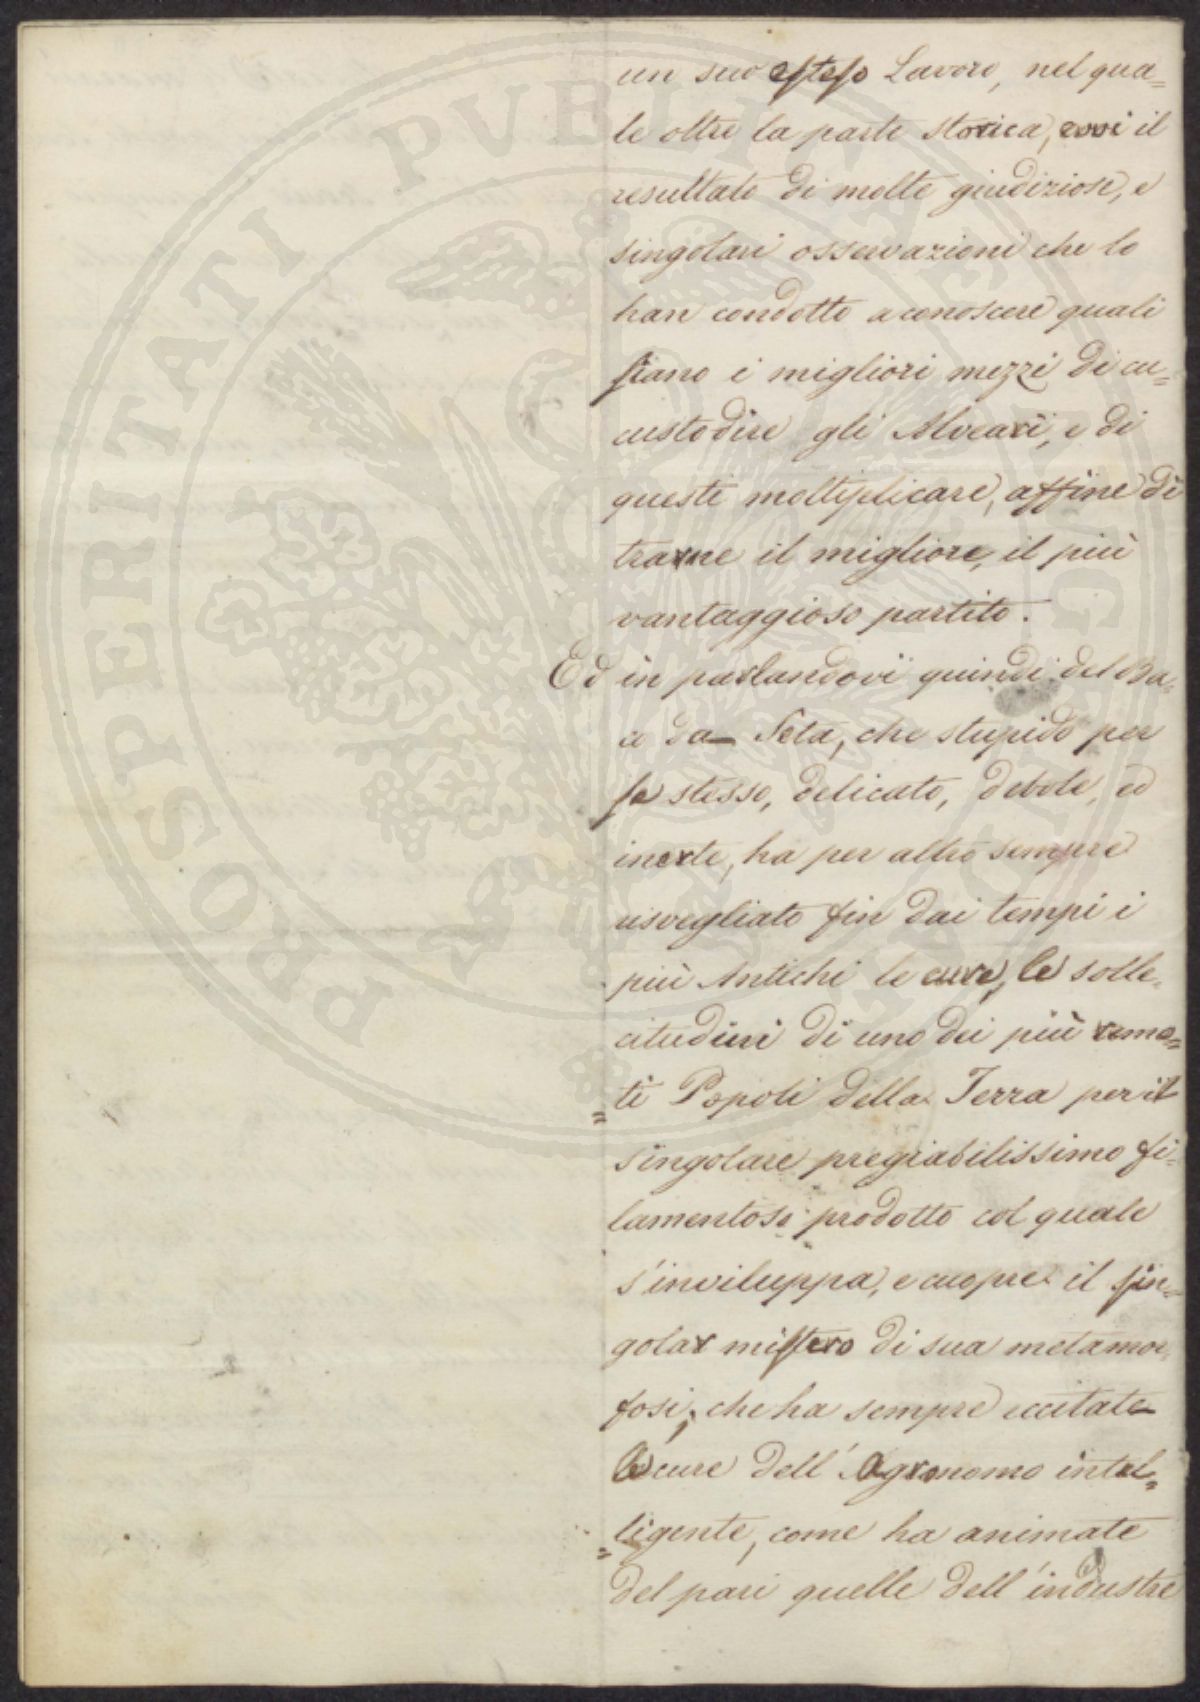 un suo esteso Lavoro, nel qua=
le oltre la parte storica, evvi il
resultato di molte giudiziose, e
singolari osservazioni che lo
han condotto a conoscere quali
siano i migliori mezzi di cu=
custodire gli Alveari, e di
questi moltiplicare, affine di
trarne il migliore, il più
vantaggioso partito.
Ed in parlandovi quindi del Ba=
co da Seta, che stupido per
se stesso, delicato, debole, ed
inerte, ha per altro sempre
risvegliato fin dai tempi i
più Antichi le cure, le solle=
citudini di uno dei più remo=
=ti Popoli della Terra per il
singolare pregiabilissimo fi=
lamentoso prodotto col quale
s'inviluppa, e cuopre il sin=
golar mistero di sua metamor=
fosi, che ha sempre eccitate
le cure dell'Agronomo intel=
=ligente, come ha animate
del pari quelle dell'industre
PROSPERITATI PVBLICAE AVGENDAE